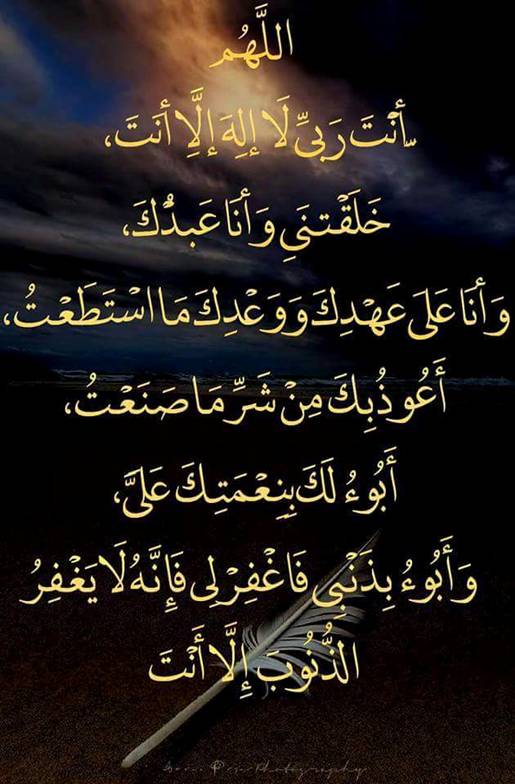 اللَّهُم
أَنْتَ رَبِّى لَا إِلهَ إِلَّا أَنتَ،
خَلَقْتَنِى وَأَنَا عَبدُكَ،
وَأَنَا عَلَى عَهْدِكَ وَوَعْدِكَ مَا اسْتَطَعْتُ،
أَعُوذُبِكَ مِنْ شَرِّ مَا صَنَعْتُ،
أَبُوءُ لَكَ بِنِعْمَتِكَ عَلَىَّ،
وَأَبُوءُ بِذَنْبِى فَاغْفِرْلِى فَإِنَّهُ لَا يَغْفِرُ
الذُّنُوبَ إِلَّا أَنْتَ
Photography